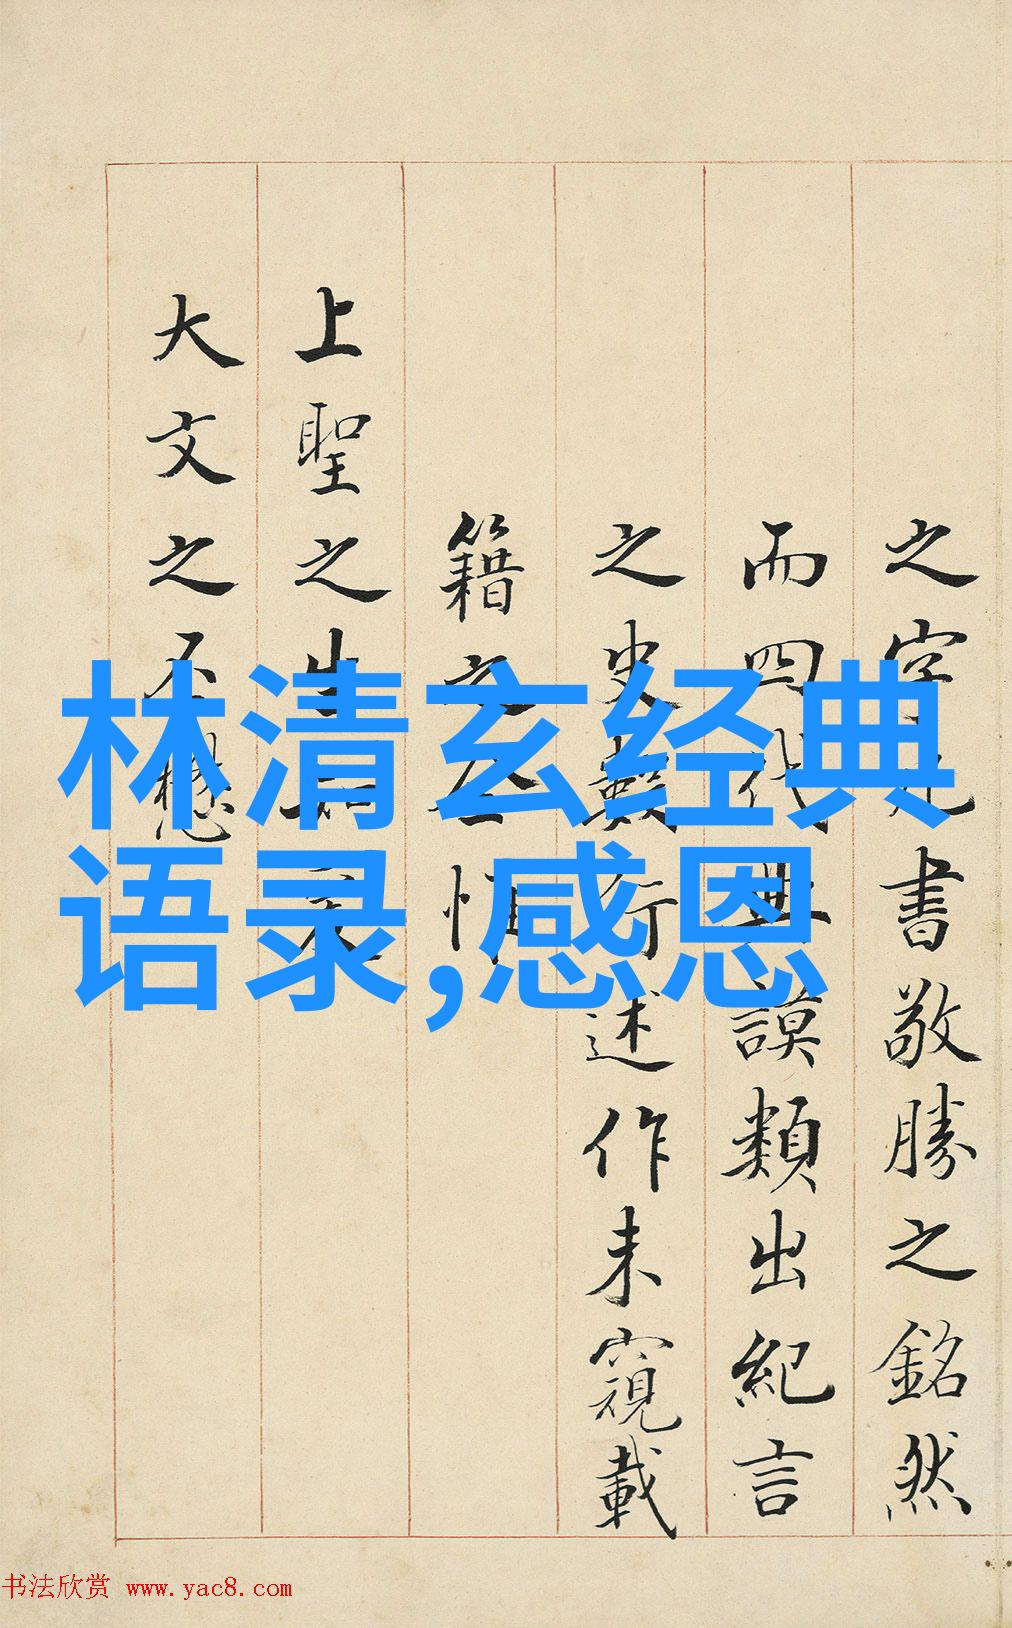 林清玄经典
语录,感恩
之字書敬勝之銘然
而四代謨類出紀言
之史述作未窺載
籍惟
上聖之生
大文之不
书法欣赏 www.yac8.com